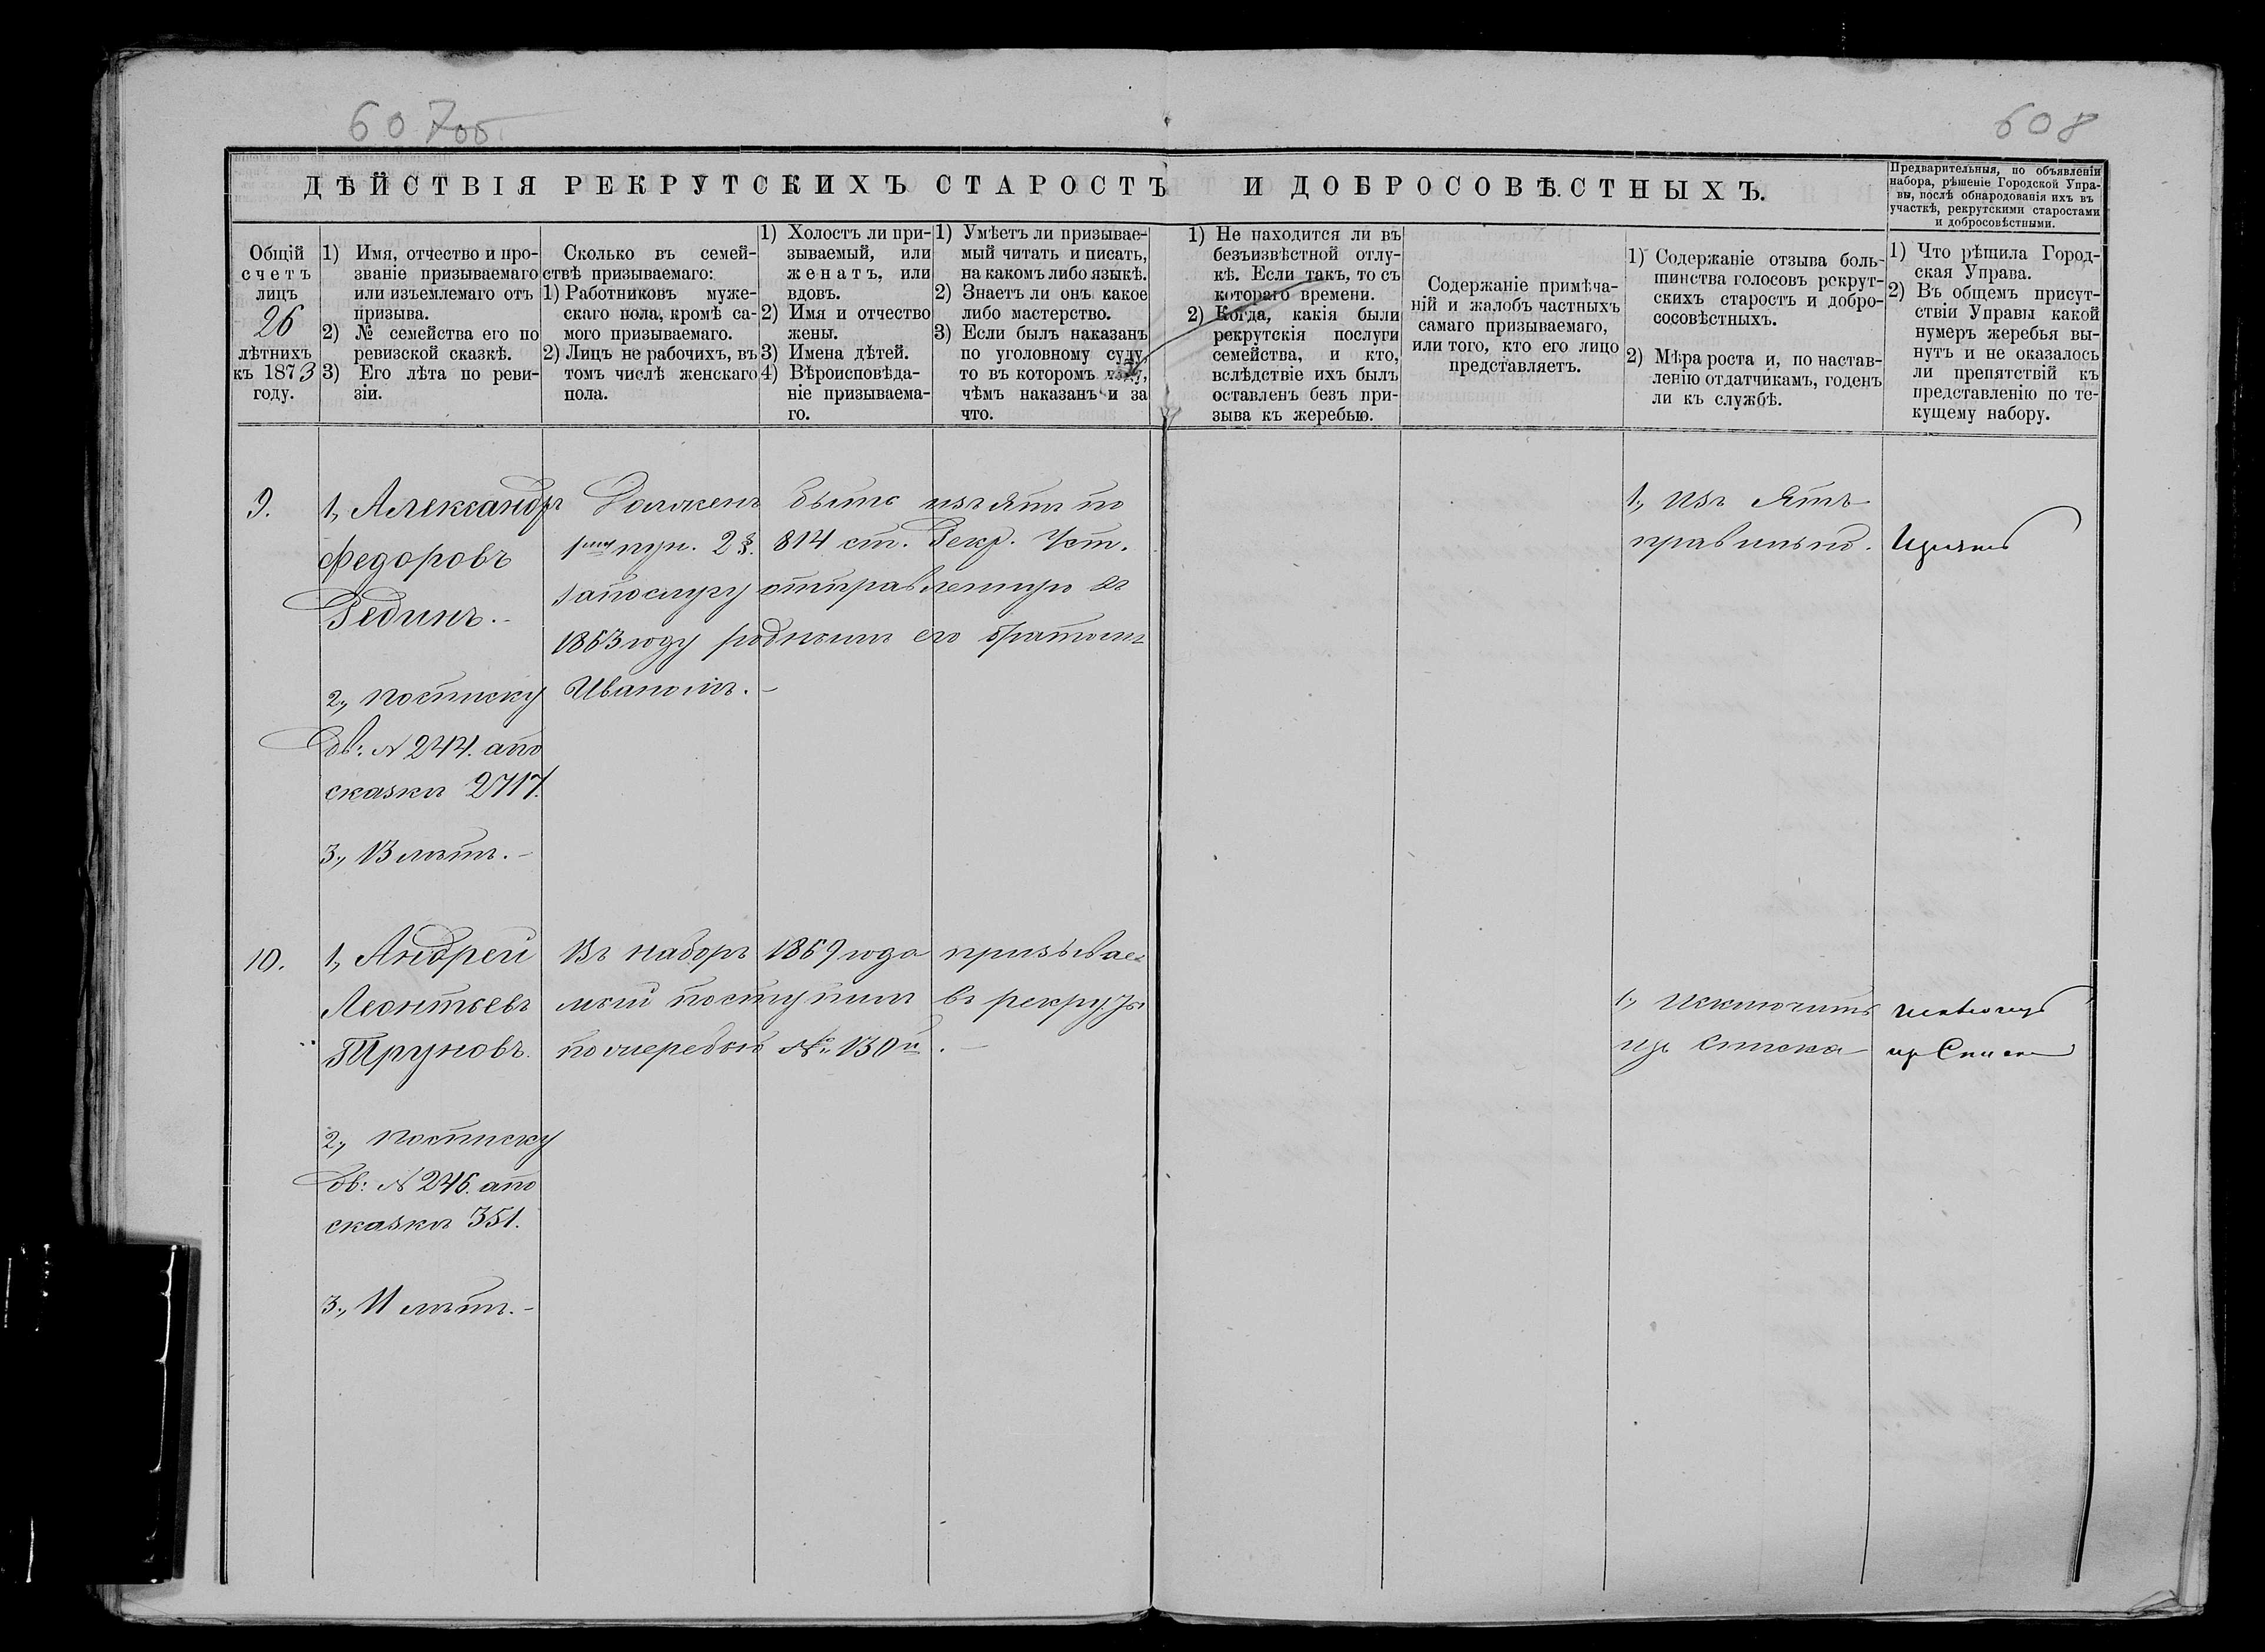 607 об
608
ДѢЙСТВІЯ РЕКРУТСКИХЪ СТАРОСТЪ И ДОБРОСОВѢСТНЫХЪ.
Предварительныя, по объявленіи
набора, рѣшеніе Городской Упра-
вы, послѣ обнародованія ихъ въ
участкѣ, рекрутскими старостами
и добросовѣстными.
Общій
счетъ
лицъ
26
лѣтнихъ
къ 1873
году.
1) Имя, отчество и про-
званіе призываемаго
или изъемлемаго отъ
призыва.
2) № семейства его по
ревизской сказкѣ.
3) Его лѣта по реви-
зіи.
Сколько въ семей-
ствѣ призываемаго:
1) Работниковъ муже-
скаго пола, кромѣ са-
мого призываемаго.
2) Лицъ не рабочихъ, въ
томъ числѣ женскаго
пола.
1) Холостъ ли при-
зываемый, или
женатъ, или
вдовъ.
2) Имя и отчество
жены.
3) Имена дѣтей.
4) Вѣроисповѣда-
ніе призываема-
го.
1) Умѣетъ ли призывае-
мый читать и писать,
на какомъ либо языкѣ.
2) Знаетъ ли онъ какое
либо мастерство.
3) Если былъ наказанъ
по уголовному суду,
то въ которомъ году,
чѣмъ наказанъ и за
что.
1) Не находится ли въ
безъизвѣстной отлу-
кѣ. Если такъ, то съ
котораго времени.
2) Когда, какія были
рекрутскія послуги
семейства, и кто,
вслѣдствіе ихъ былъ
оставленъ безъ при-
зыва къ жеребью.
Содержаніе примѣча-
ній и жалобъ частныхъ
самаго призываемаго,
или того, кто его лицо
представляетъ.
1) Содержаніе отзыва боль-
шинства голосовъ рекрут-
скихъ старостъ и добро-
сосовѣстныхъ.
2) Мѣра роста и, по настав-
ленію отдатчикамъ, годенъ
ли къ службѣ.
1) Что рѣшила Город-
ская Управа.
2) Въ общемъ присут-
ствіи Управы какой
нумеръ жеребья вы-
нутъ и не оказалось
ли препятствій къ
представленію по те-
кущему набору.
9.
1., Александръ
Федоровъ
Рединъ.
2., по списку
дв: № 244. а по
сказкѣ 2717.
3., 13 лѣтъ.
Долженъ быть изъятъ по
1му пун. 2 §. 814 ст. Рекр. Уст.
за послугу отправленную въ
1863 году роднымъ его братомъ
Иваномъ.
1., Изъятъ
правильно.
Изъятъ
10.
1., Андрей
Леонтьевъ
Труновъ.
2., по списку
дв: № 246. а по
сказкѣ 351.
3., 11 лѣтъ.
Въ наборъ 1869 года призывае-
мый поступилъ въ рекруты
по очереди № 130й.
1., Исключить
изъ списка
исключить
изъ Списка